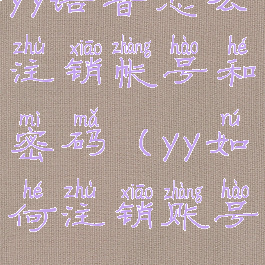 yy语音怎么
zhù xiāo zhàng hào hé
注销帐号和
mì mǎ rú
密码（yy如
hé zhù xiāo zhàng hào
何注销账号